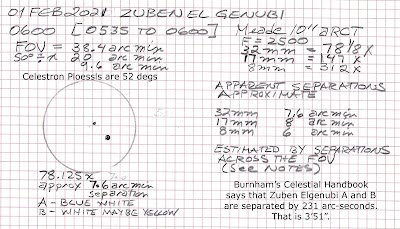 01 FEB 2021 ZUBEN EL GENUBI
0600 [0535 TO 0600]
FOV = 38.4 arc min
20 arc min
9.6 arc min
Celestron Ploessls are 52 degs
Meade 10" ARCT
F = 2500
32mm = 78.18X
17mm = 147X
8mm = 312X
APPARENT SEPARATIONS
APPROXIMATE
32mm 7.6 arc min
17mm 8 arc min
8mm 6 arc min
ESTIMATED BY SEPARATIONS
ACROSS THE FOV
(SEE NOTES)
78.125X
approx 7.6 arc min
separation
A - BLUE WHITE
B - WHITE MAYBE YELLOW
Burnham's Celestial Handbook
says that Zuben Elgenubi A and B
are separated by 231 arc-seconds.
That is 3'51".